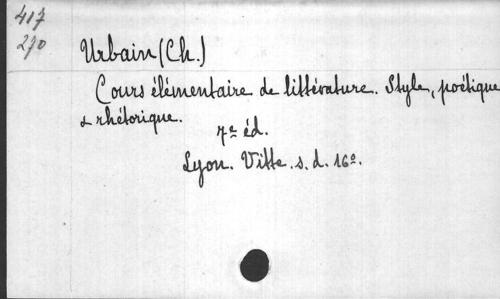 417
270
Urbain (Ch.)
Cours élémentaire de littérature. Style, poétique
& rhétorique.
7e éd.
Lyon. Vitte. s. d. 16º.